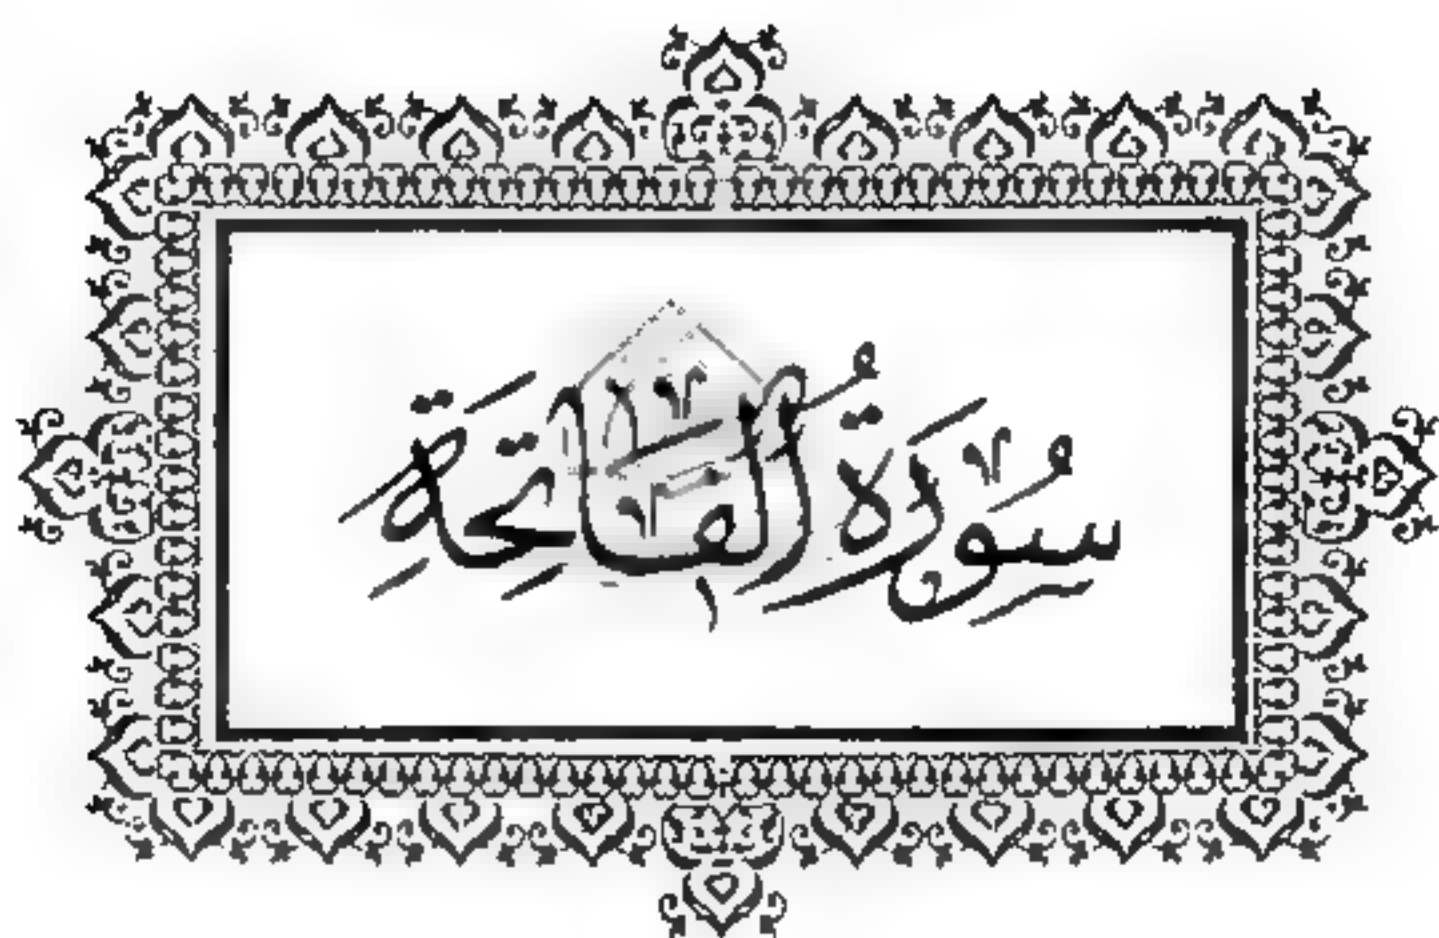 سُورَةُ الْفَاتِحَةِ